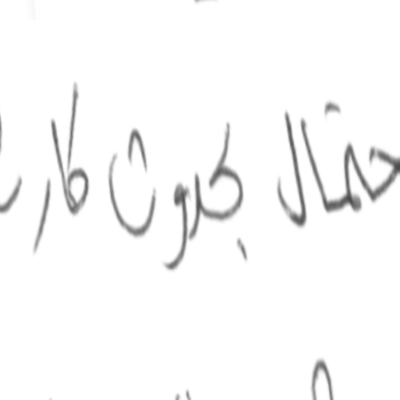 حتمال بحدوث كار